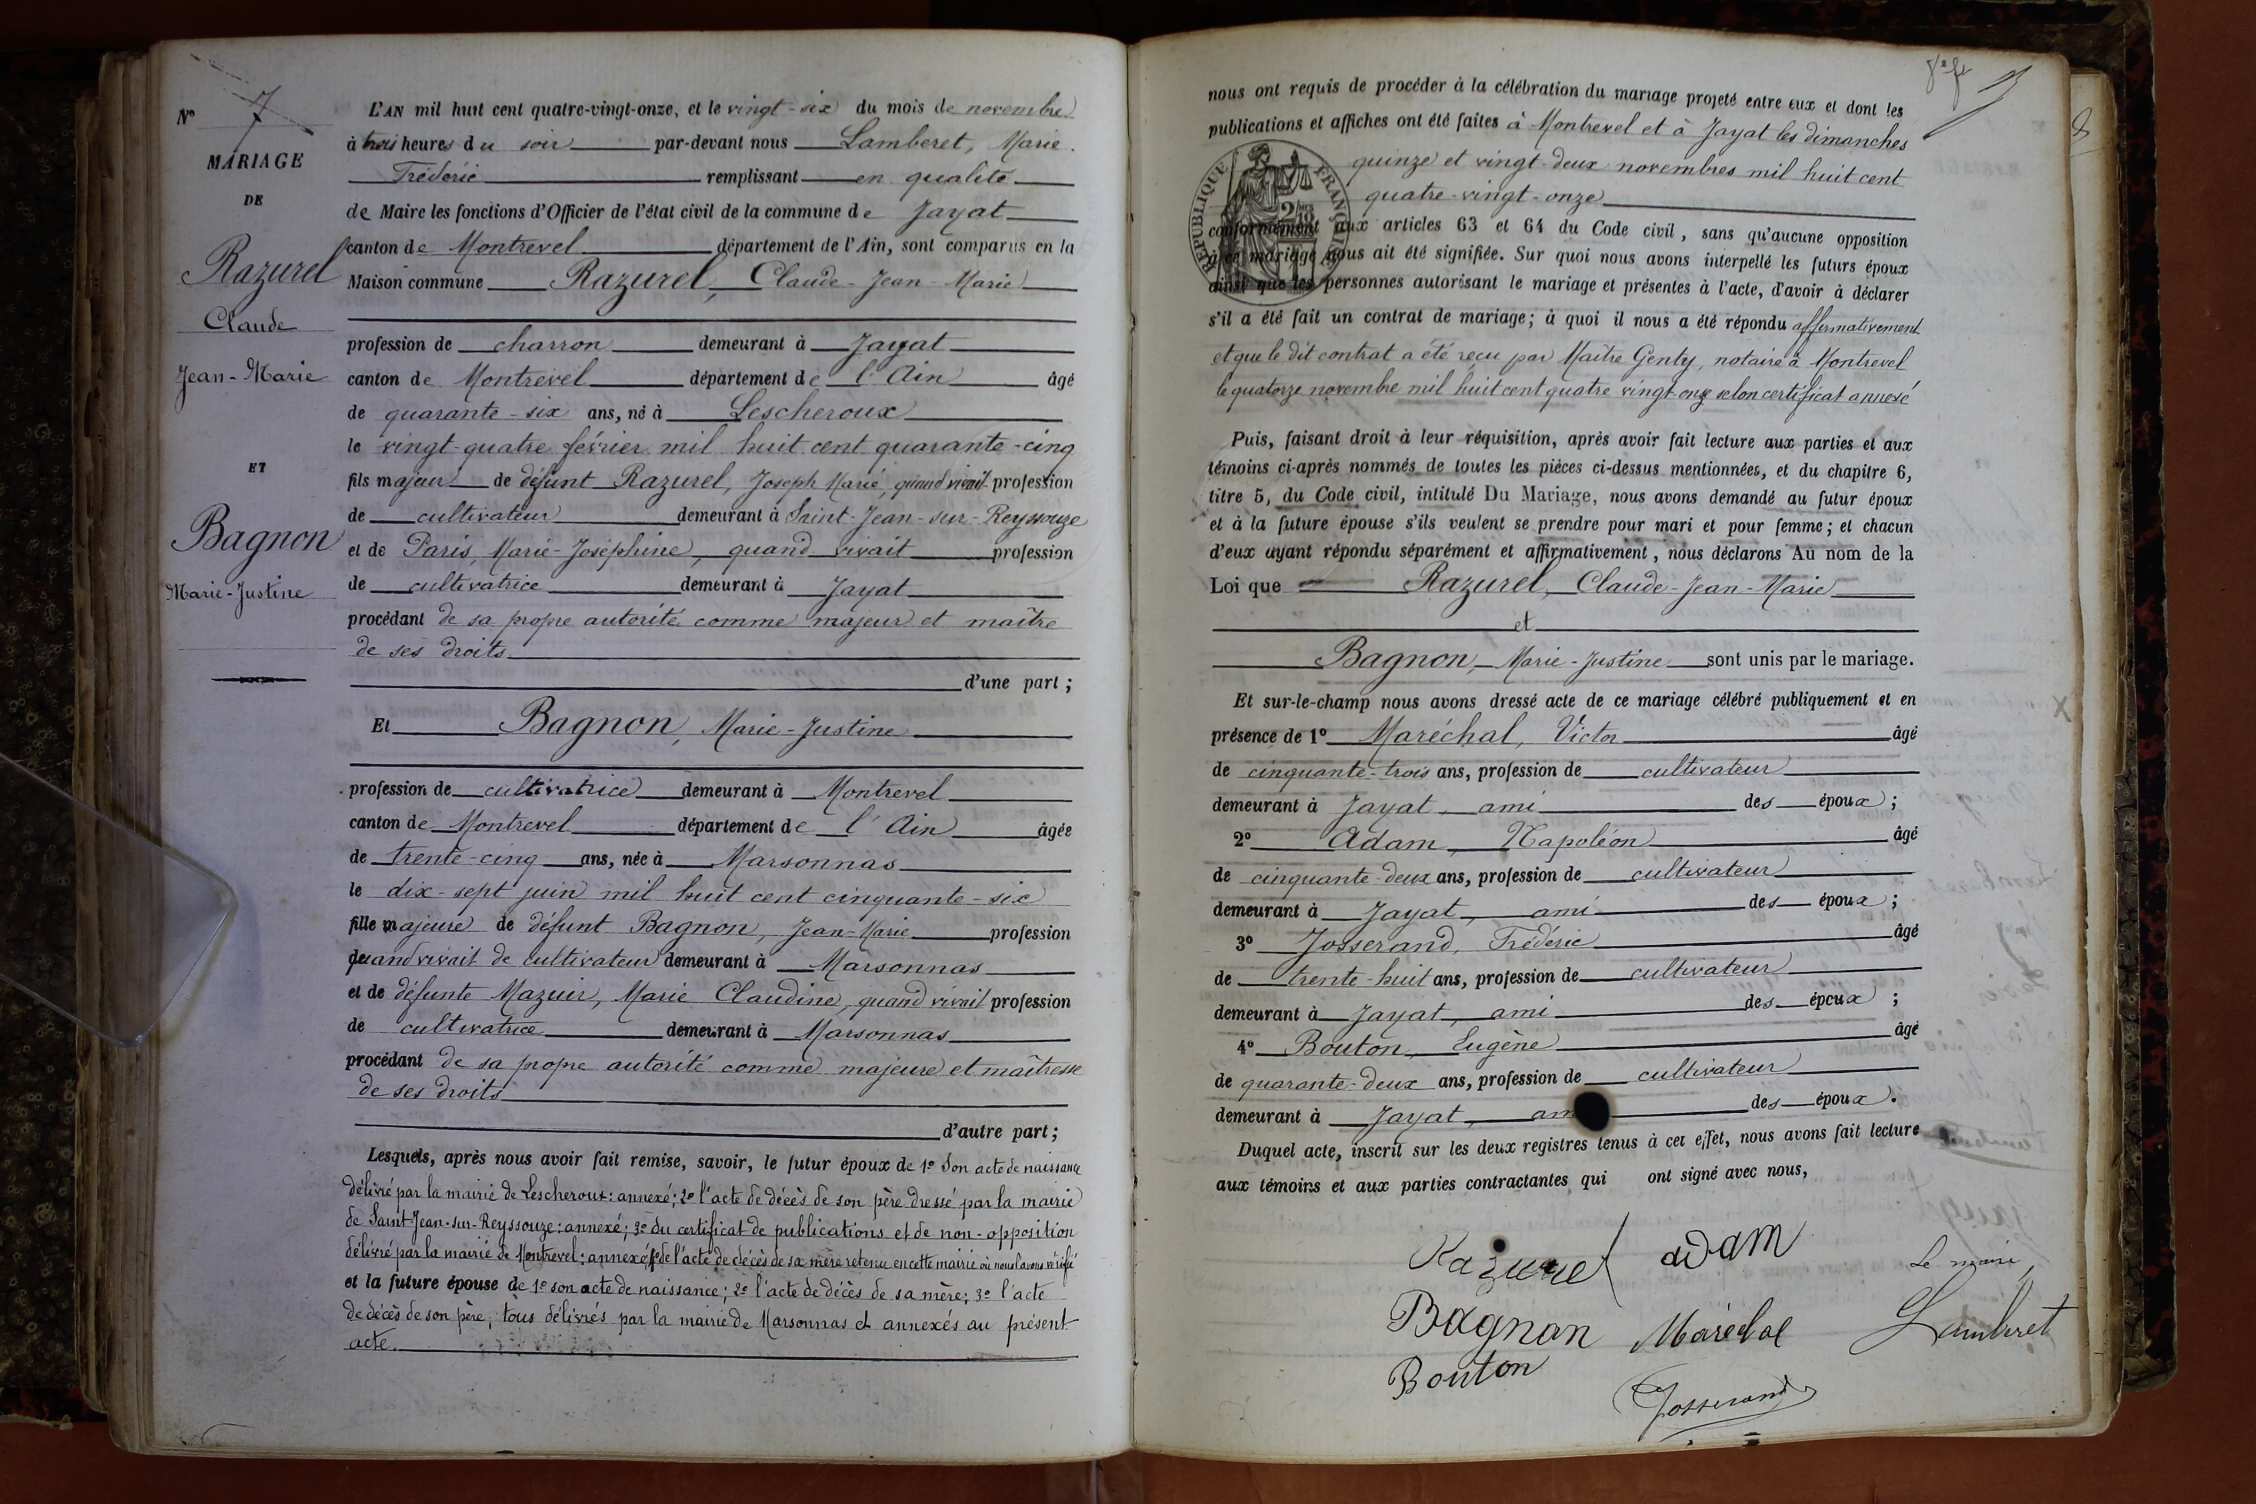 N° 7
MARIAGE
DE
Razurel
Claude
Jean-Marie
ET
Bagnon
Marie-Justine
L'AN mil huit cent quatre-vingt-onze, et le vingt-six du mois de novembre
à trois heures du soir par-devant nous Lamberet, Marie
Frédéric remplissant en qualité
de Maire les fonctions d'Officier de l'état civil de la commune de Jayat
canton de Montrevel département de l'Ain, sont comparus en la
Maison commune Razurel, Claude-Jean-Marie
profession de charron demeurant à Jayat
canton de Montrevel département de l'Ain âgé
de quarante-six ans, né à Lescheroux
le vingt-quatre février mil huit cent quarante-cinq
fils majeur de défunt Razurel, Joseph Marie, quand vivait profession
de cultivateur demeurant à Saint-Jean-sur-Reyssouze
et de Paris, Marie-Joséphine, quand vivait profession
de cultivatrice demeurant à Jayat
procédant de sa propre autorité comme majeur et maître
de ses droits
d'une part ;
Et Bagnon, Marie-Justine
profession de cultivatrice demeurant à Montrevel
canton de Montrevel département de l'Ain âgée
de trente-cinq ans, née à Marsonnas
le dix-sept juin mil huit cent cinquante-six
fille majeure de défunt Bagnon, Jean-Marie profession
quand vivait de cultivateur demeurant à Marsonnas
et de défunte Mazuir, Marie Claudine, quand vivait profession
de cultivatrice demeurant à Marsonnas
procédant de sa propre autorité comme majeure et maîtresse
de ses droits
d'autre part ;
Lesquels, après nous avoir fait remise, savoir, le futur époux de 1° Son acte de naissance
délivré par la mairie de Lescheroux : annexé ; 2° l'acte de décès de son père dressé par la mairie
de Saint-Jean-sur-Reyssouze : annexé ; 3° du certificat de publications et de non-opposition
délivré par la mairie de Montrevel : annexé 4° de l'acte de décès de sa mère retenu en cette mairie où nous l'avons vérifié
et la future épouse de 1° son acte de naissance ; 2° l'acte de décès de sa mère ; 3° l'acte
de décès de son père, tous délivrés par la mairie de Marsonnas et annexés au présent
acte.
nous ont requis de procéder à la célébration du mariage projeté entre eux et dont les
publications et affiches ont été faites à Montrevel et à Jayat les dimanches
quinze et vingt-deux novembres mil huit cent
quatre-vingt-onze
RÉPUBLIQUE FRANÇAISE
conformément aux articles 63 et 64 du Code civil, sans qu'aucune opposition
à ce mariage nous ait été signifiée. Sur quoi nous avons interpellé les futurs époux
ainsi que les personnes autorisant le mariage et présentes à l'acte, d'avoir à déclarer
s'il a été fait un contrat de mariage ; à quoi il nous a été répondu affirmativement
et que le dit contrat a été reçu par Maître Genty, notaire à Montrevel
le quatorze novembre mil huit cent quatre vingt onze selon certificat annexé
Puis, faisant droit à leur réquisition, après avoir fait lecture aux parties et aux
témoins ci-après nommés de toutes les pièces ci-dessus mentionnées, et du chapitre 6,
titre 5, du Code civil, intitulé Du Mariage, nous avons demandé au futur époux
et à la future épouse s'ils veulent se prendre pour mari et pour femme ; et chacun
d'eux ayant répondu séparément et affirmativement, nous déclarons Au nom de la
Loi que Razurel, Claude-Jean-Marie
et
Bagnon, Marie-Justine sont unis par le mariage.
Et sur-le-champ nous avons dressé acte de ce mariage célébré publiquement et en
présence de 1° Maréchal, Victor âgé
de cinquante-trois ans, profession de cultivateur
demeurant à Jayat, ami des époux ;
2° Adam, Napoléon âgé
de cinquante-deux ans, profession de cultivateur
demeurant à Jayat, ami des époux ;
3° Josserand, Frédéric âgé
de trente-huit ans, profession de cultivateur
demeurant à Jayat, ami des époux ;
4° Bouton, Eugène âgé
de quarante-deux ans, profession de cultivateur
demeurant à Jayat, am des époux.
Duquel acte, inscrit sur les deux registres tenus à cet effet, nous avons fait lecture
aux témoins et aux parties contractantes qui ont signé avec nous,
Razurel adam
Le maire,
Bagnon Maréchal Lamberet
Bouton
Josserand